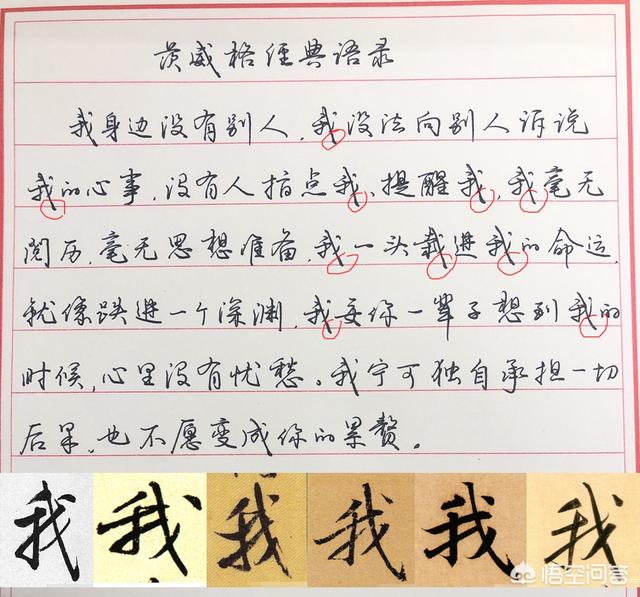 茨威格经典语录
我身边没有别人，我没法向别人诉说
我的心事，没有人指点我、提醒我，我毫无
阅历，毫无思想准备，我一头栽进我的命运，
就像跌进一个深渊，我要你一辈子想到我的
时候，心里没有忧愁。我宁可独自承担一切
后果，也不愿变成你的累赘。
我 我 我 我 我 我
悟空问答